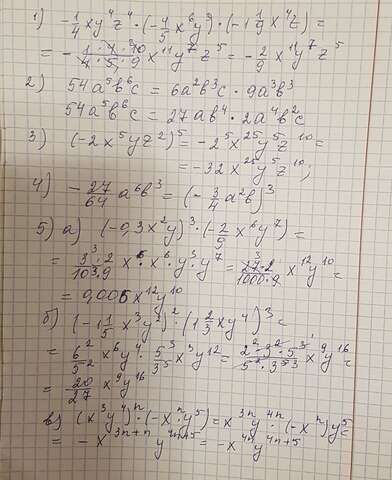 1) -1/4 xy⁴z⁴ · (-4/5 x⁶y³) · (-1 1/9 x⁴z) =
= - (1·4·10)/(4·5·9) x¹¹y⁷z⁵ = -2/9 x¹¹y⁷z⁵
2) 54a⁵b⁶c = 6a²b³c · 9a³b³
54a⁵b⁶c = 27ab⁴ · 2a⁴b²c
3) (-2x⁵yz²)⁵ = -2⁵x²⁵y⁵z¹⁰ =
= -32x²⁵y⁵z¹⁰;
4) -27/64 a⁶b³ = (-3/4 a²b)³
5) a) (-0,3x²y)³ · (-2/9 x⁶y⁷) =
= (3³·2)/(10³·9) x⁶·x⁶·y³y⁷ = (27·2)/(1000·9) x¹²y¹⁰ =
= 0,006x¹²y¹⁰
б) (-1 1/5 x³y²)² · (1 2/3 xy⁴)³ =
= 6²/5² x⁶y⁴ · 5³/3³ x³y¹² = (2²·3²·5³)/(5²·3³) x⁹y¹⁶ =
= 20/27 x⁹y¹⁶
в) (x³y⁴)ⁿ · (-xⁿ·y⁵) = x³ⁿy⁴ⁿ · (-xⁿ)y⁵ =
= -x³ⁿ⁺ⁿ y⁴ⁿ⁺⁵ = -x⁴ⁿy⁴ⁿ⁺⁵